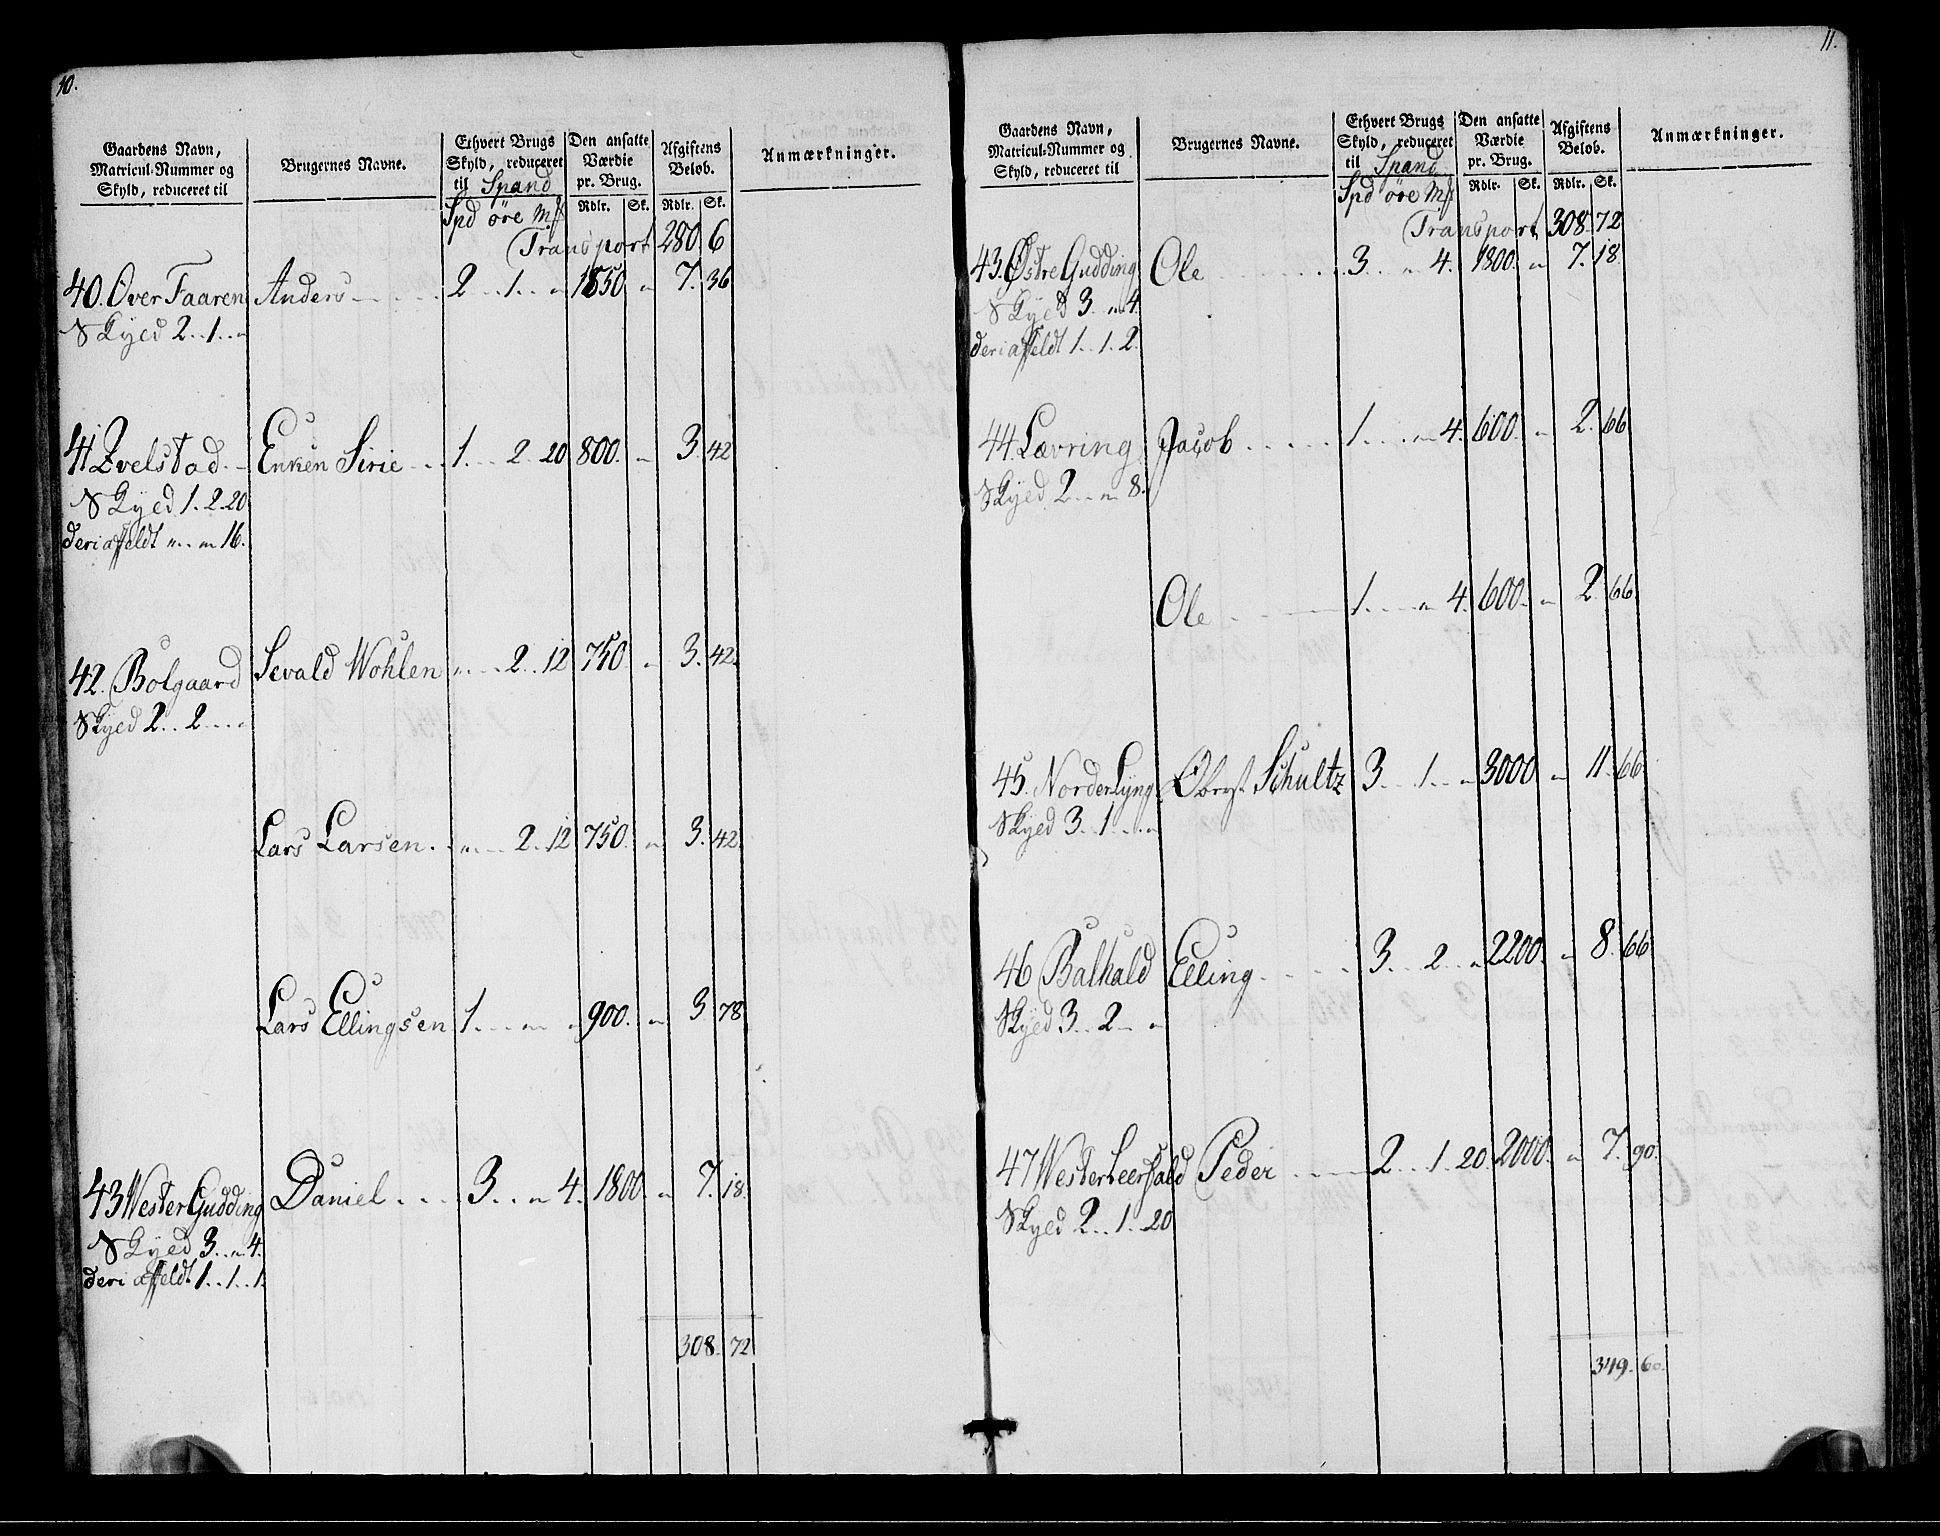 10.
Gaardens Navn, Matricul-Nummer og Skyld, reduceret til
Brugernes Navne.
Ethvert Brugs Skyld, reduceret til Spand
Den ansatte Værdie pr. Brug.
Afgiftens Beløb.
Anmærkninger.
Spd øre Mk Rdlr. Sk. Rdlr. Sk.
Transport 280. 6
40. Over Faaren Anders 2 .. 1 .. „ 1850 „ 7. 36
Skyld 2 .. 1 .. „
41 Qvelstad Enken Sirie 1 .. 2 20 800. „ 3. 42
Skyld 1. 2. 20
deri affeldt „ .. „ 16.
42. Bolgaard Sevald Wohlen „ .. 2 .. 12 750. „ 3. 42.
Skyld 2 .. 2 .. „
Lars Larsen „ .. 2 .. 12 750. „ 3. 42.
Lars Ellingsen 1 .. „ „ 900. „ 3 78.
43 Wester Gudding Daniel 3 .. „ 4. 1800. „ 7. 18.
Skyld 3 .. „ 4.
deri affeldt 1 .. 1 .. 1.
308. 72
11.
Gaardens Navn, Matricul-Nummer og Skyld, reduceret til
Brugernes Navne.
Ethvert Brugs Skyld, reduceret til Spand
Den ansatte Værdie pr. Brug.
Afgiftens Beløb.
Anmærkninger.
Spd øre Mk Rdlr. Sk. Rdlr. Sk.
Transport 308. 72
43. Østre Gudding Ole 3 .. „ 4. 1800. „ 7. 18.
Skyld 3. „ 4.
deri affeldt 1 .. 1. 2.
44. Lævring Jacob 1 .. „ 4. 600. „ 2. 66
Skyld 2 .. „ 8.
Ole 1 .. „ 4. 600. „ 2. 66.
45. Norderlyng Oberst Schultz 3 .. 1 .. „ 3000 „ 11. 66.
Skyld 3 .. 1 .. „
46 Balhald Elling 3 .. 2 .. „ 2200. „ 8. 66
Skyld 3 .. 2 „
47 Wester Leersald Peder 2 .. 1. 20. 2000. „ 7. 90.
Skyld 2 .. 1 .. 20
349. 60.